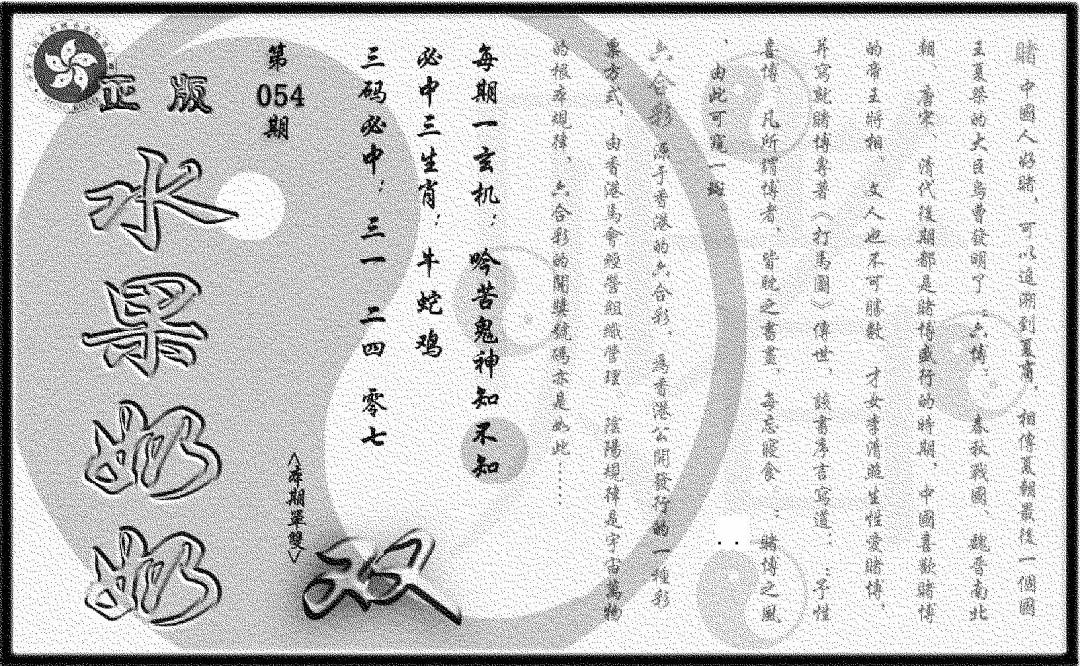 賭 中國人好賭、可以追溯到夏商、相傳夏朝最後一個國
王夏桀的大臣烏曹發明了:六博、 春秋戰國、魏晉南北
朝、唐宋、清代後期都是賭博盛行的時期、中國喜歡賭博
的帝王將相 文人也不可勝數 才女李清照生性愛賭博、
并寫就賭博專著《打馬圖》傳世、該書序言寫道:：予性
喜博 凡所謂博者、皆耽之晝 、每忘寢食 :賭博之風
、由此可窺一斑。 ..
六合彩 源于香港的六合彩、為香港公開發行的一種彩
票方式、由香港馬會經營組織管理 陰陽規律是宇宙萬物
的根本規律、六合彩的開獎號碼亦是如此……
每期一玄机: 吟苦鬼神知不知
必中三生肖: 牛蛇鸡
三码必中: 三一 二四 零七
第054期
<本期單雙>
双
正版
水果奶奶